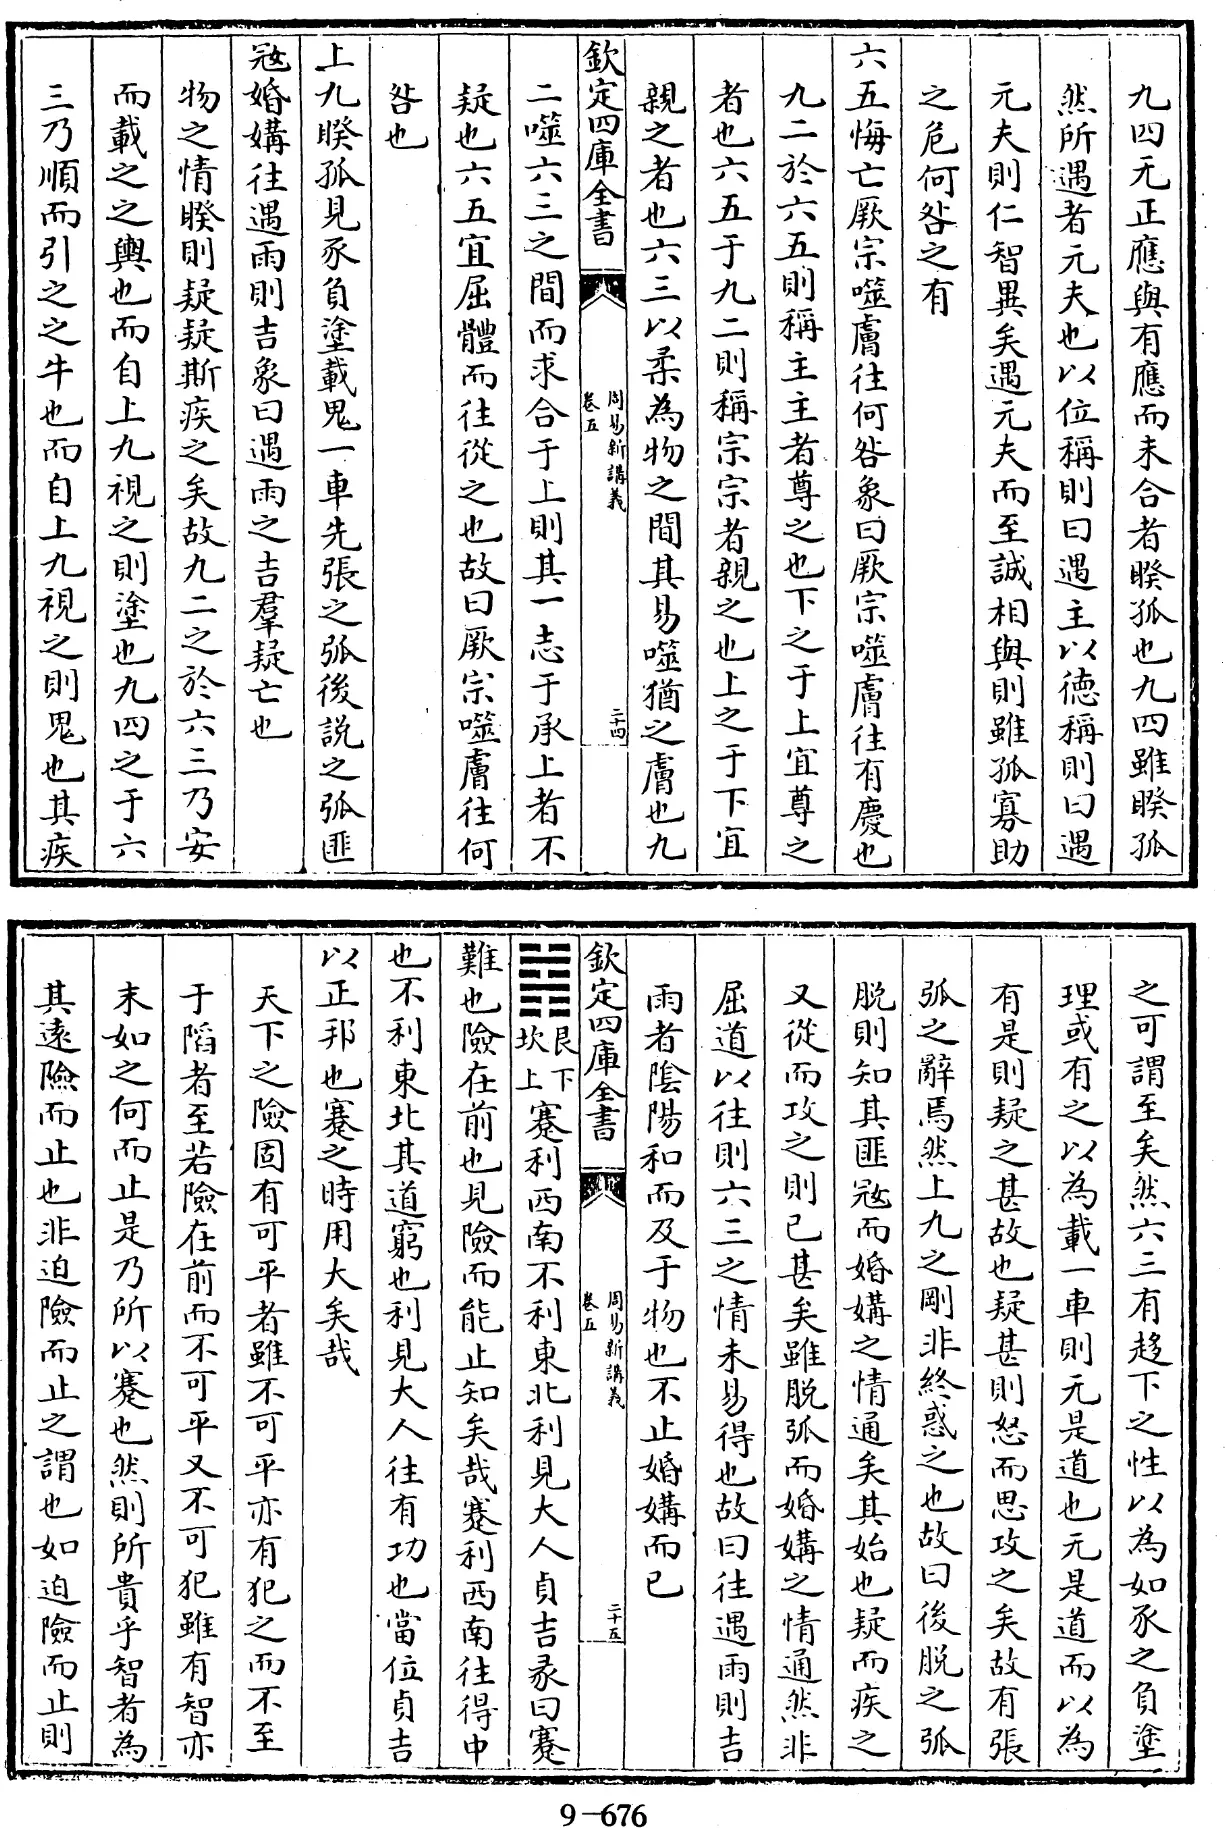 九四无正應與有應而未合者睽孤也九四雖睽孤
然所遇者元夫也以位稱則曰遇主以德稱則曰遇
元夫則仁智異矣遇元夫而至誠相與則雖孤寡助
之危何咎之有
六五悔亡厥宗噬膚往何咎象曰厥宗噬膚往有慶也
九二於六五則稱主主者尊之也下之于上宜尊之
者也六五于九二則稱宗宗者親之也上之于下宜
親之者也六三以柔為物之間其易噬猶之膚也九
欽定四庫全書
周易新講義
卷五
二十四
二噬六三之間而求合于上則其一志于承上者不
疑也六五宜屈體而往從之也故曰厥宗噬膚往何
咎也
上九睽孤見豕負塗載鬼一車先張之弧後說之弧匪
寇婚媾往遇雨則吉象曰遇雨之吉羣疑亡也
物之情睽則疑疑斯疾之矣故九二之於六三乃安
而載之之輿也而自上九視之則塗也九四之于六
三乃順而引之之牛也而自上九視之則鬼也其疾
之可謂至矣然六三有趍下之性以為如豕之負塗
理或有之以為載一車則无是道也无是道而以為
有是則疑之甚故也疑甚則怒而思攻之矣故有張
弧之辭焉然上九之剛非終惑之也故曰後脱之弧
脱則知其匪寇而婚媾之情通矣其始也疑而疾之
又從而攻之則已甚矣雖脱弧而婚媾之情通然非
屈道以往則六三之情未易得也故曰往遇雨則吉
雨者陰陽和而及于物也不止婚媾而已
欽定四庫全書
周易新講義
卷五
二十五
䷦艮下坎上蹇利西南不利東北利見大人貞吉彖曰蹇
難也險在前也見險而能止知矣哉蹇利西南往得中
也不利東北其道窮也利見大人往有功也當位貞吉
以正邦也蹇之時用大矣哉
天下之險固有可平者雖不可平亦有犯之而不至
于陷者至若險在前而不可平又不可犯雖有智亦
末如之何而止是乃所以蹇也然則所貴乎智者為
其遠險而止也非迫險而止之謂也如迫險而止則
9-676